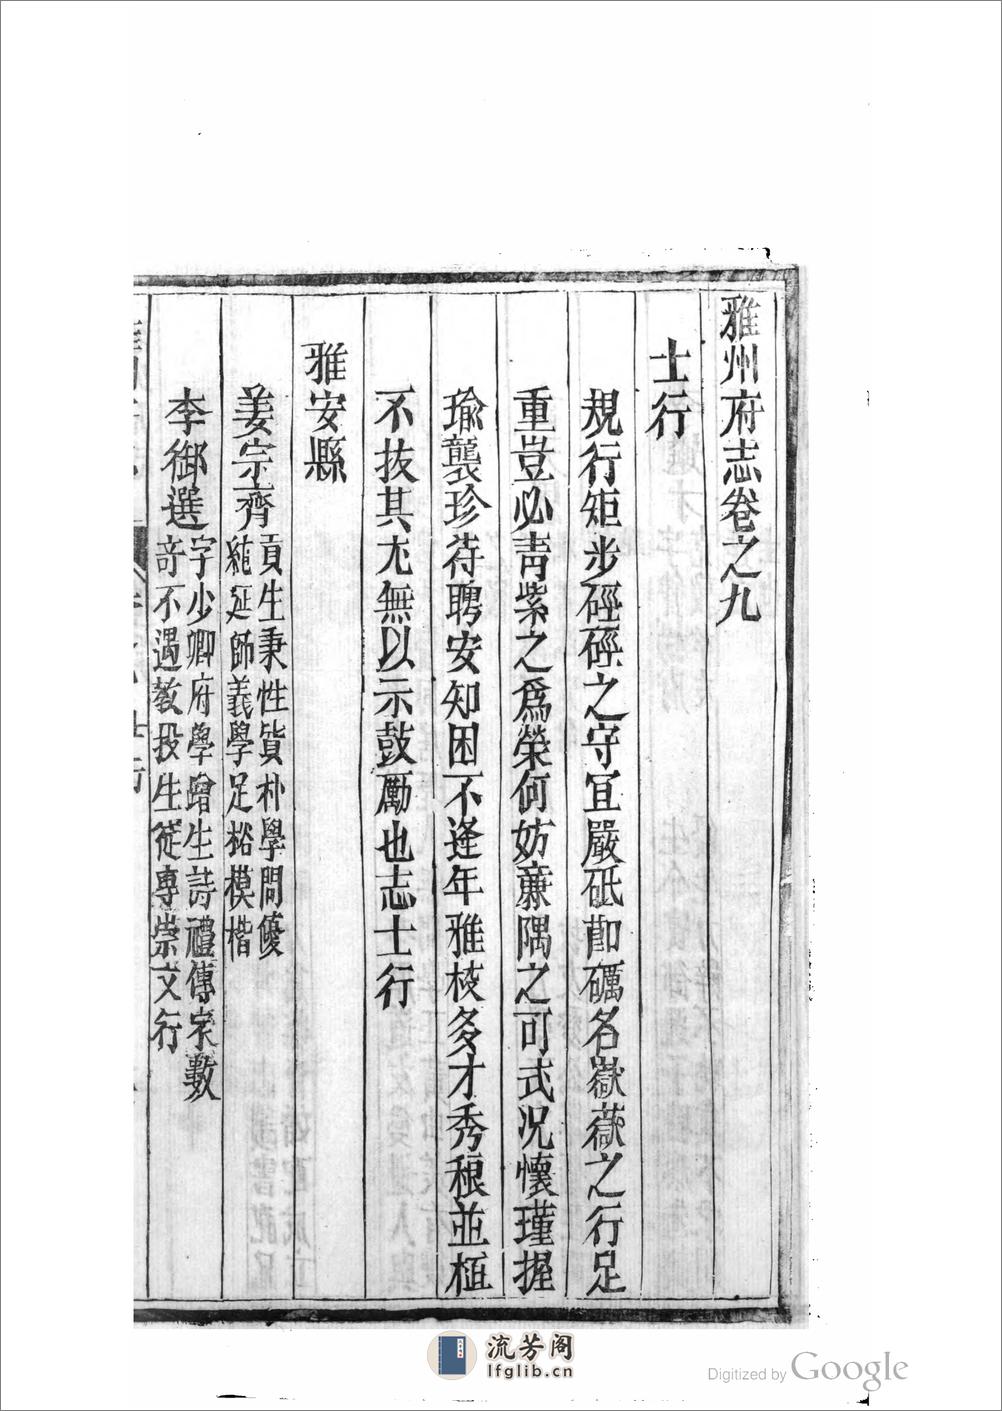 雅州府志卷之九
士行
規行矩步硜硜之守宜嚴砥節礪名嶽嶽之行足
重豈必青紫之爲榮何妨廉隅之可式况懷瑾握
瑜襲珍待聘安知困不逢年雅枝多才秀稂並植
不抜其尤無以示鼓勵也志士行
雅安縣
姜宗齊貢生秉性質朴學問優
延師義學足模楷
李御選字少卿府學增生詩禮傳家數
竒不遇教投生徒專崇文行
流芳阁
lfglib.cn
Digitized by Google